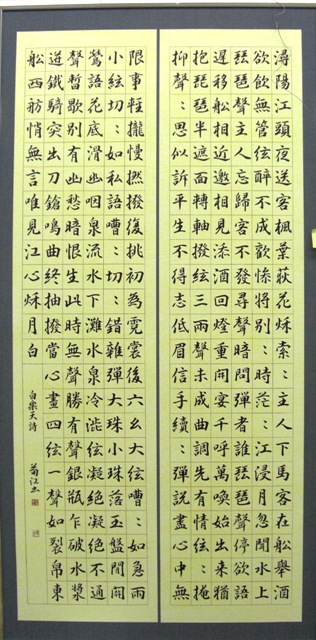 潯陽江頭夜送客楓葉荻花秌索〻主人下馬客在舩舉酒
欲飲無管弦醉不成歡慘將別〻時茫〻江浸月忽聞水上
琵琶聲主人忘歸客不發尋聲暗問彈者誰琵琶聲停欲語
遲移舩相近邀相見添酒回燈重開宴千呼萬喚始出来猶
抱琵琶半遮面轉軸撥絃三兩聲未成曲調先有情絃〻掩
抑聲〻思似訴平生不得志低眉信手續〻彈説盡心中無
限事輕攏慢撚撥復挑初為霓裳後六幺大弦嘈〻如急雨
小絃切〻如私語嘈〻切〻錯雜彈大珠小珠落玉盤間関
鶯語花底滑幽咽泉流水下灘水泉冷澁弦凝絕凝絕不通
聲暫歇別有幽愁暗恨生此時無聲勝有聲銀瓶乍破水漿
迸鐵騎突出刀鎗鳴曲終抽撥當心畫四弦一聲如裂帛東
舩西舫悄無言唯見江心秌月白
白樂天詩
菊江書